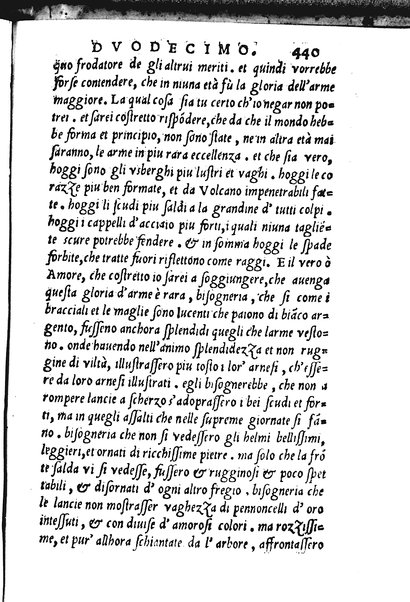 DVODECIMO. 440
quo frodatore de gli altrui meriti. et quindi vorrebbe
forse contendere, che in niuna età fù la gloria dell'arme
maggiore. La qual cosa sia tu certo ch'io negar non po
trei. et sarei costretto rispōdere, che da che il mondo heb=
be forma et principio, non sono state, ne in altra età mai
saranno, le arme in piu rara eccellenza. et che sia vero,
hoggi sono gli vsberghi piu lustri et vaghi. hoggi le co
razze piu ben formate, et da Volcano impenetrabili fat=
te. hoggi li scudi piu saldi a la grandine d'tutti colpi.
hoggi i cappelli d'acciaio piu forti, i quali niuna tagliē=
te scure potrebbe fendere. & in somma hoggi le spade
forbite, che tratte fuori riflettono come raggi. E il vero ò
Amore, che costretto io sarei a soggiungere, che auenga
questa gloria d'arme è rara, bisogneria, che si come i
bracciali et le maglie sono lucenti che paiono di biāco ar=
gento, fusseno anchora splendidi quegli che larme vesto=
no. onde hauendo nell'animo splendidezza et non rug=
gine di viltà, illustrassero piu tosto i lor' arnesi, ch'esse=
re da loro arnesi illustrati. egli bisognerebbe, che non a
rompere lancie a scherzo s'adoprassero i bei scudi et for=
ti, ma in quegli assalti che nelle supreme giornate si fā=
no. bisogneria che non si vedessero gli helmi bellissimi,
leggieri, et ornati di ricchissime pietre. ma solo che la frō
te salda vi si vedesse, fussero & rugginosi & poco spet
tabili, & disornati d'ogni altro fregio. bisogneria che
le lancie non mostrasser vaghezza di pennoncelli d'oro
intessuti, & con diuise d'amorosi colori. ma rozzissi=
me, et pur' allhora schiantate da l'arbore, affrontassero